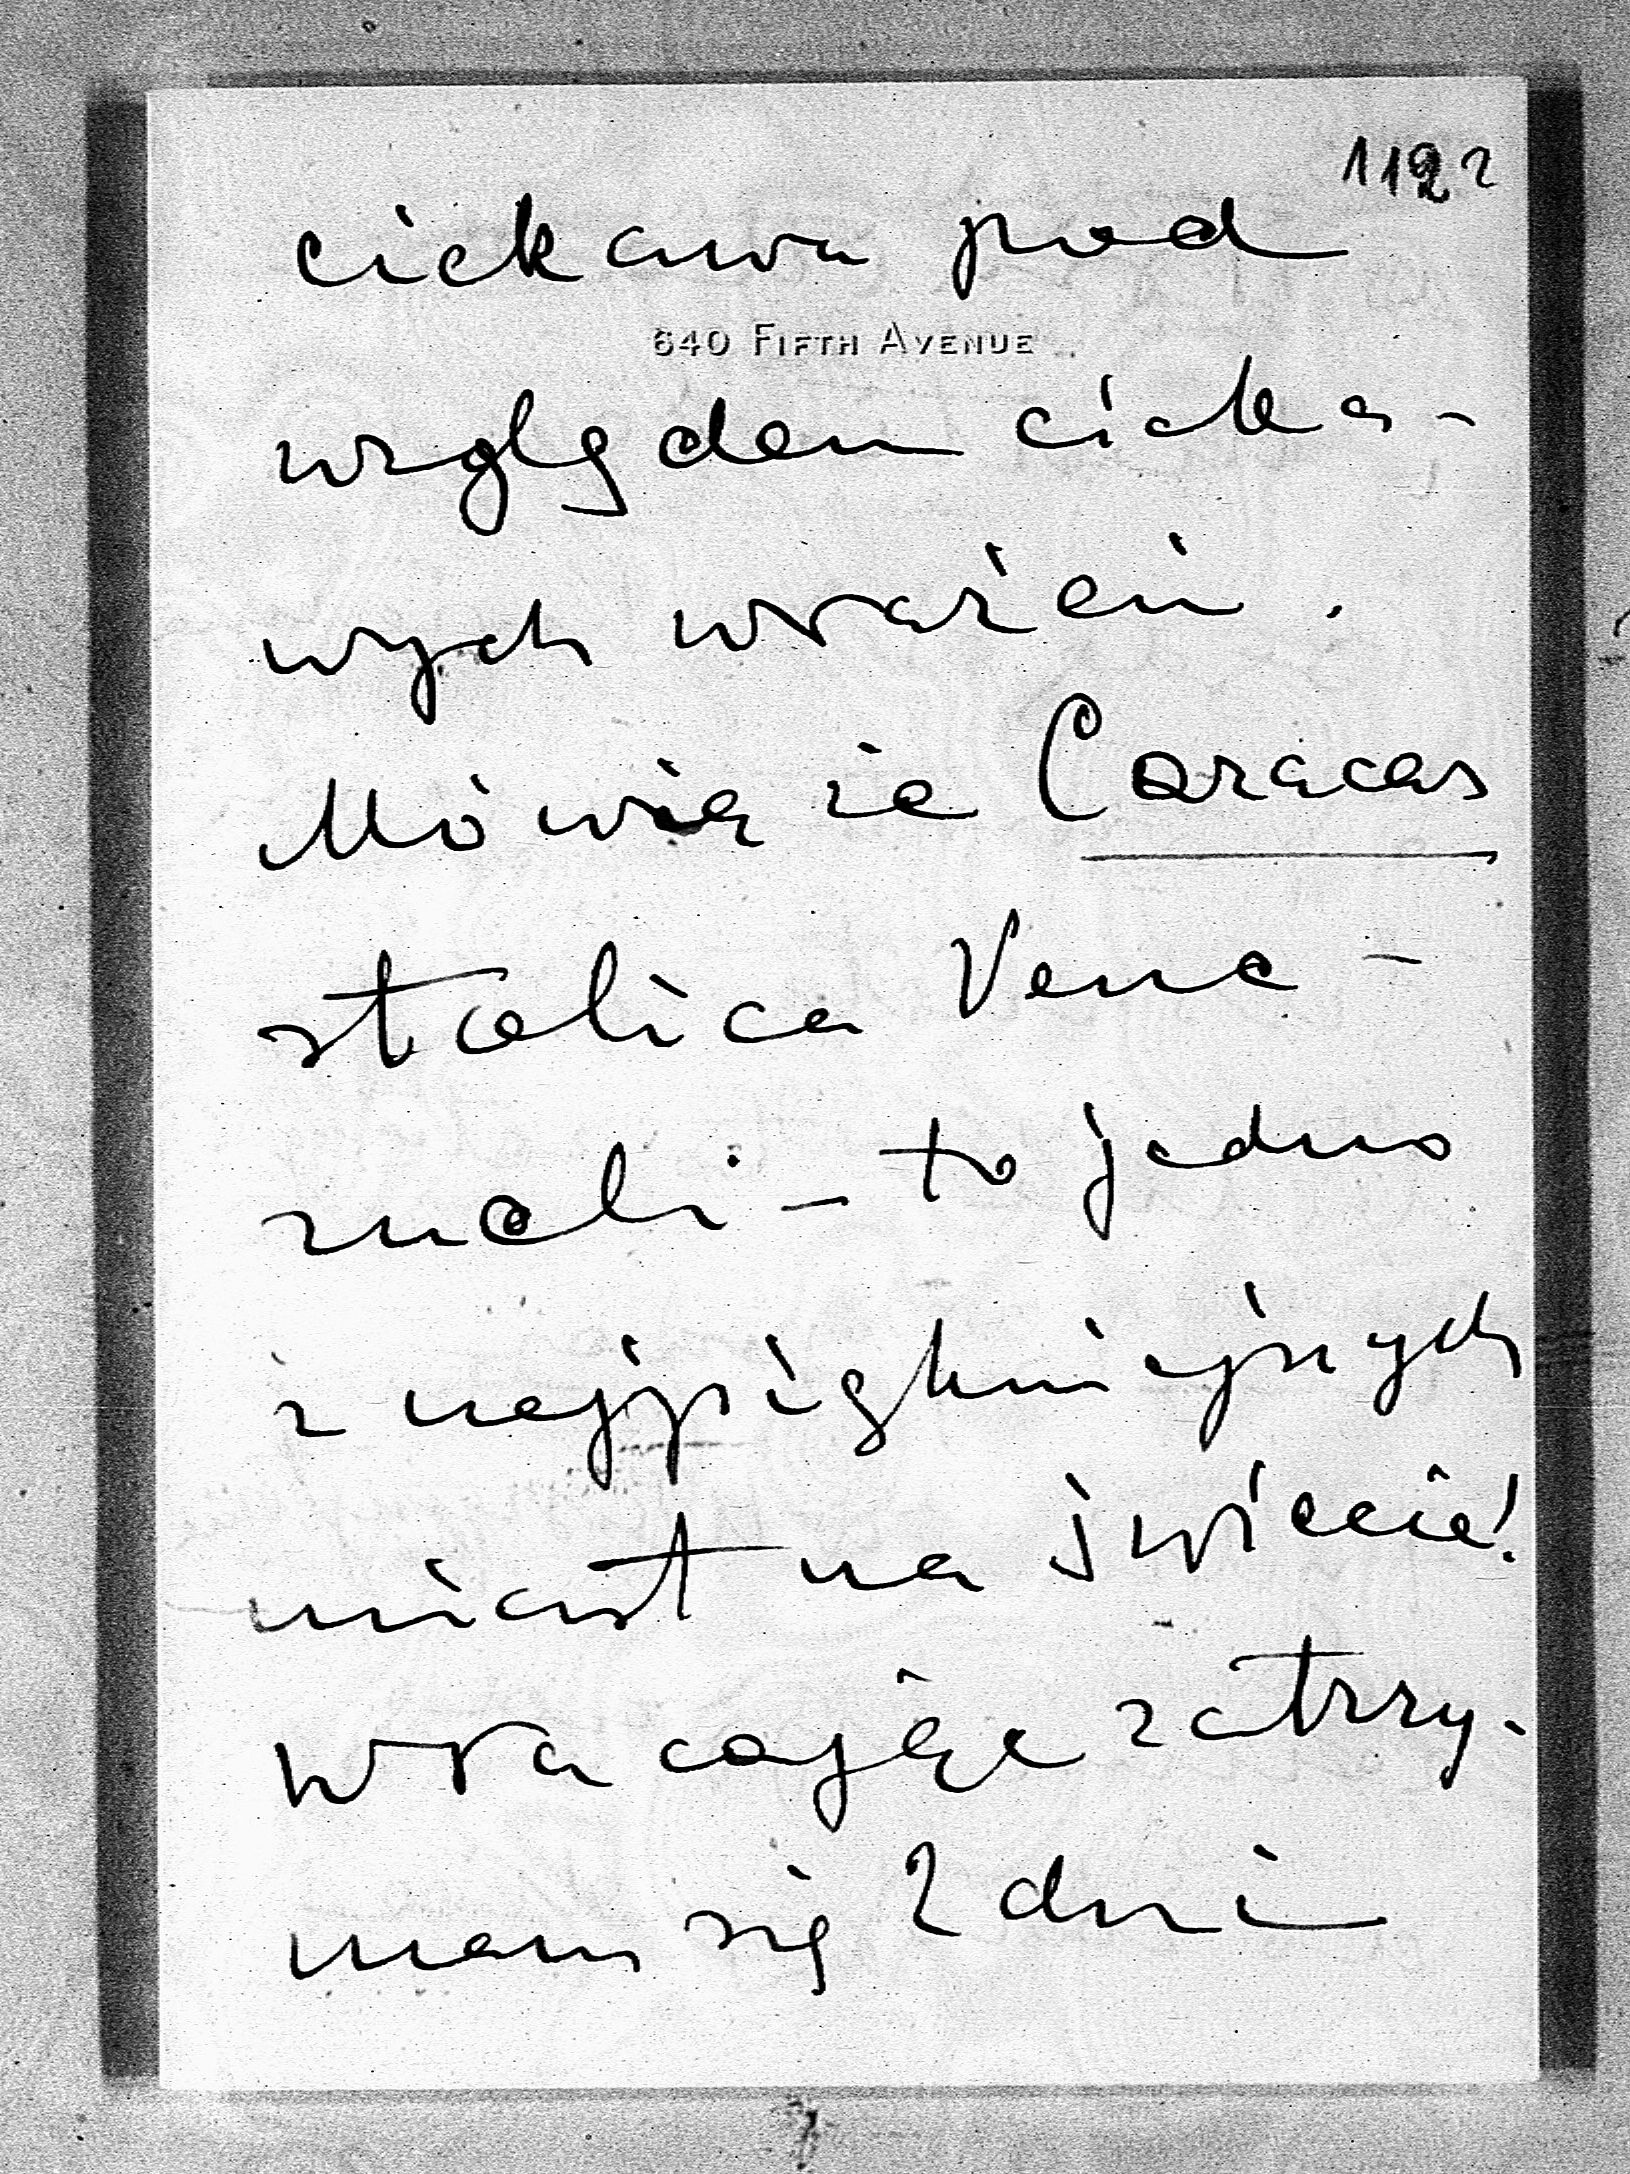 1122
ciekawa pod
640 FIFTH AVENUE
względem cieka-
wych wrażeń.
Mówią że Caracas
stolica Vene-
zueli - to jedno
z najpiękniejszych
miast na świecie!
Wracając zatrzy-
mam się 2 dni